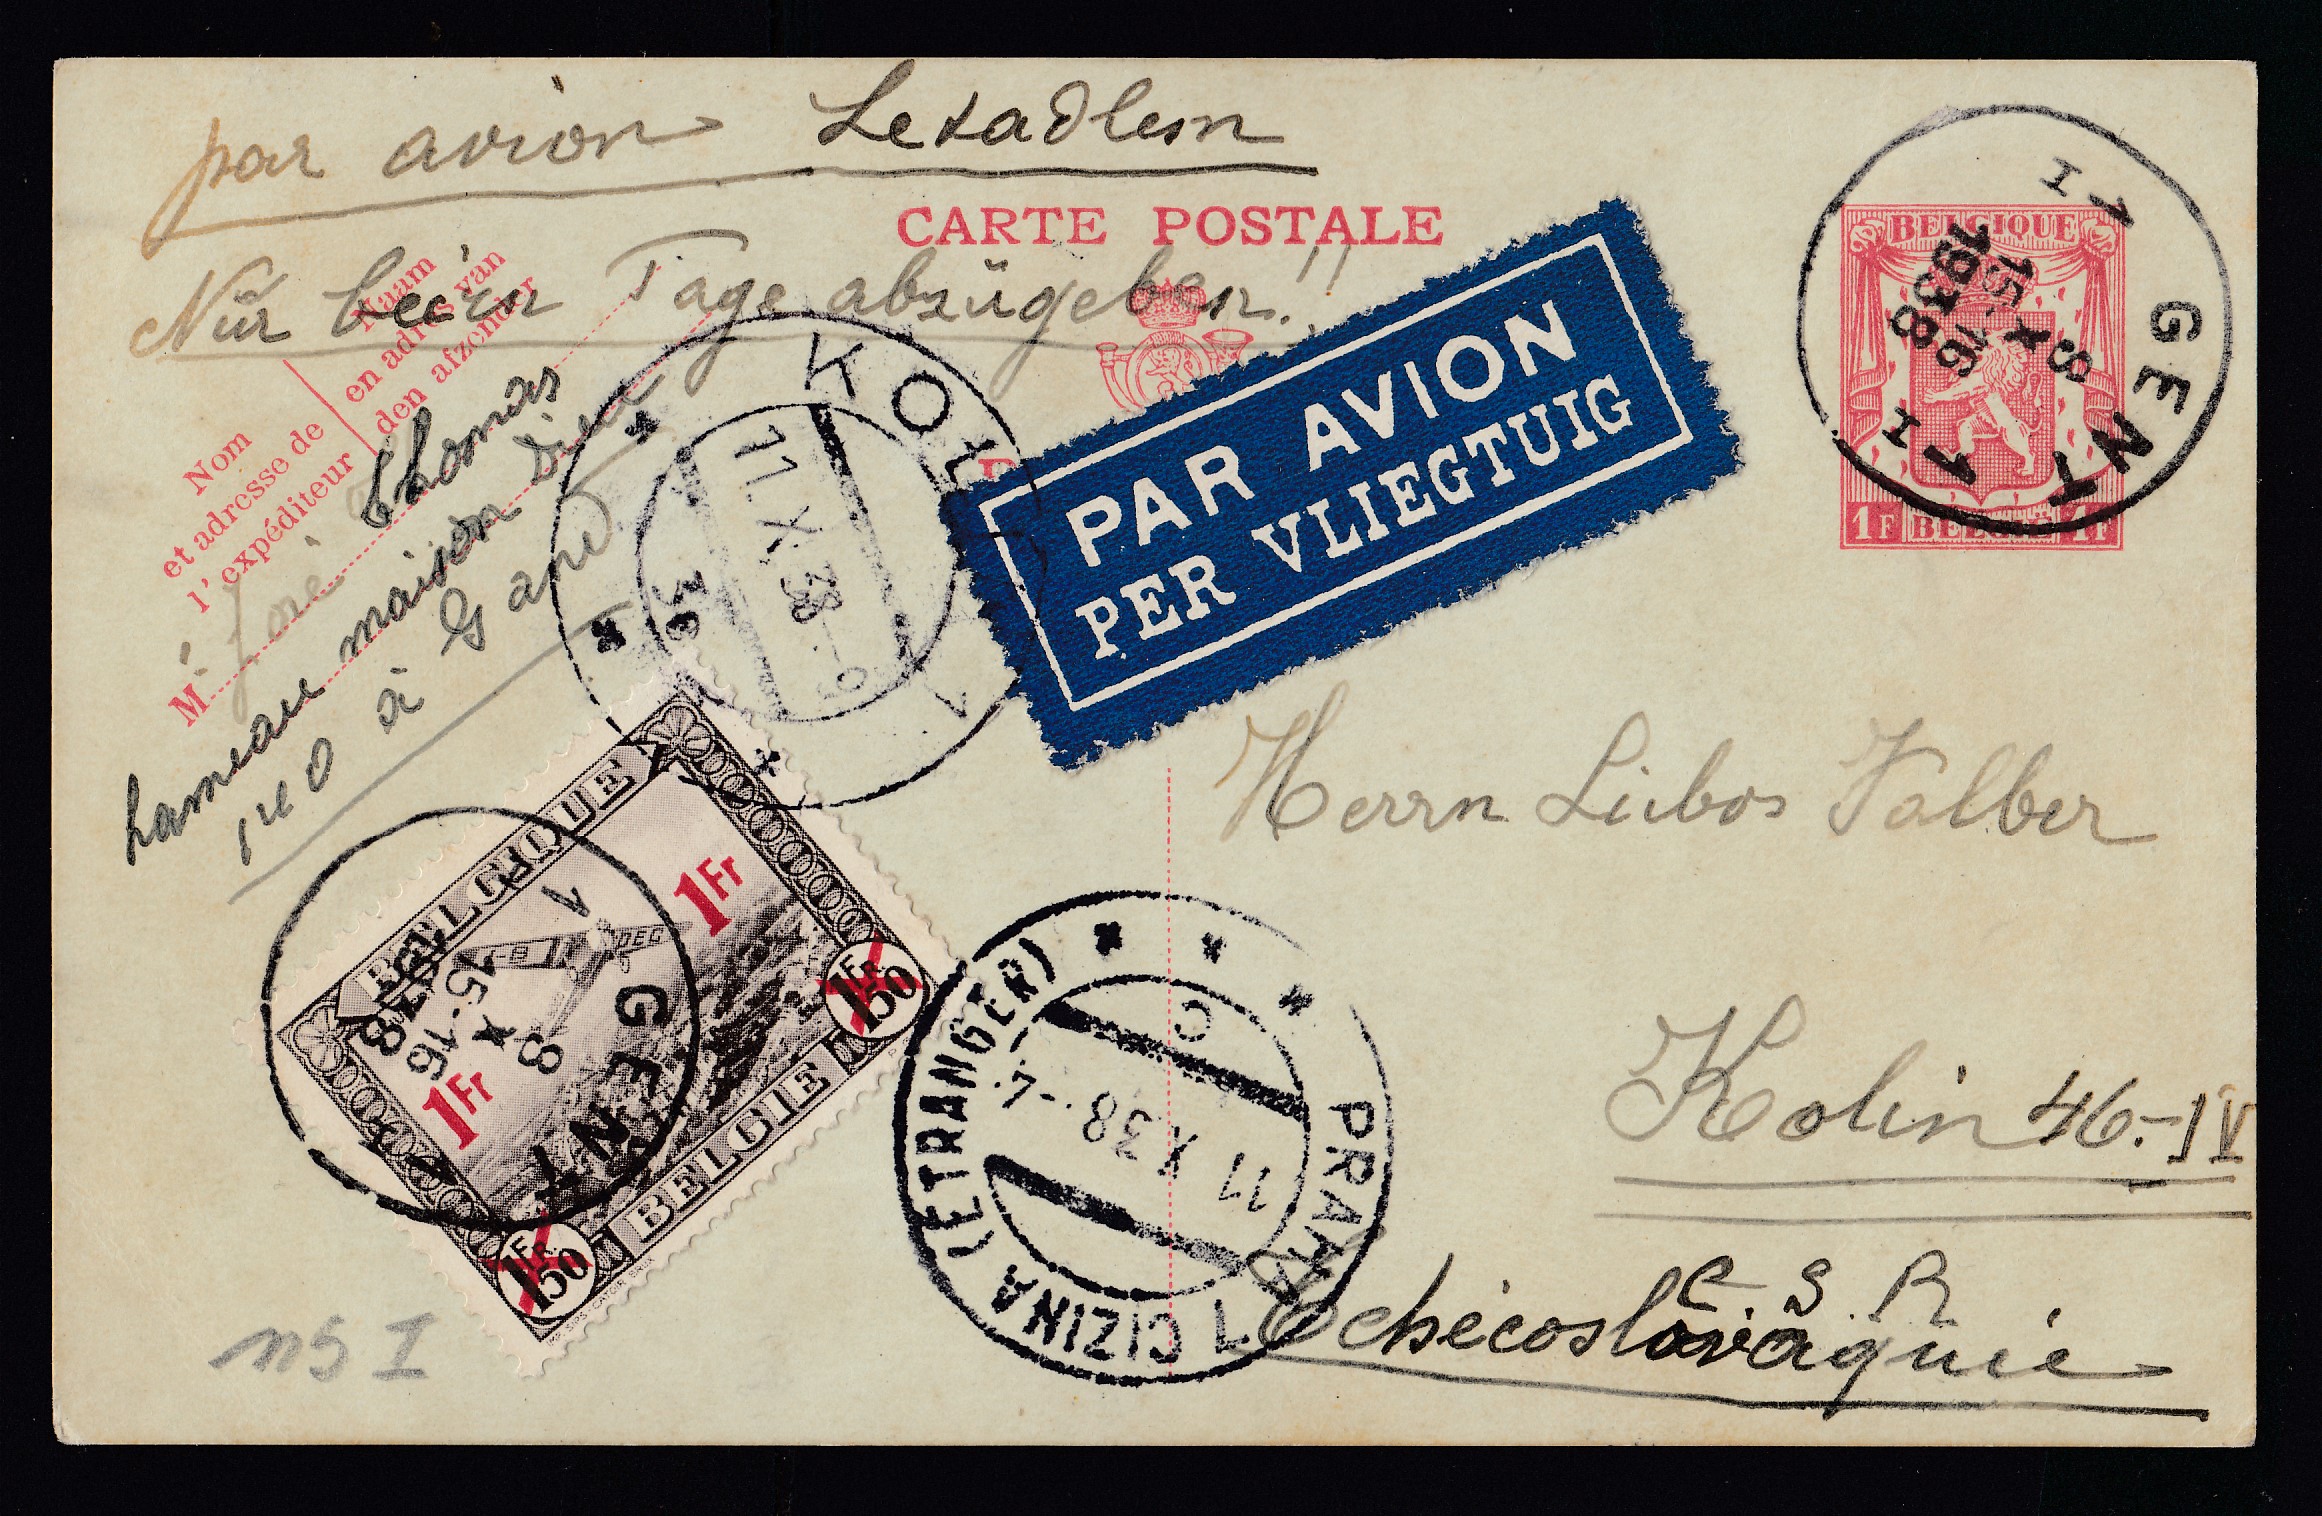 par avion Letadlem
CARTE POSTALE
Nür beim Tage abzügeben!!
Naam
en adres van
den afzender
Nom
et adresse de
l'expéditeur
M
José Thomas
hameau maison Dieu
140 à Gand
KOLÍN
11.X.38.-9
3e
PAR AVION
PER VLIEGTUIG
BELGIQUE
1F BELGIE 1F
GENT
1 1
I I
8 X
15-16
1938
BELGIQUE
1Fr
1Fr
1Fr50
1Fr50
BELGIE
GENT
1 1
8 X
15-16
1938
Herrn Lubos Falber
Kolin 46.-IV
C. S. R.
Tchécoslovaquie
PRAHA 1 CIZINA (ETRANGER)
11 X 38.-4
C
115 I